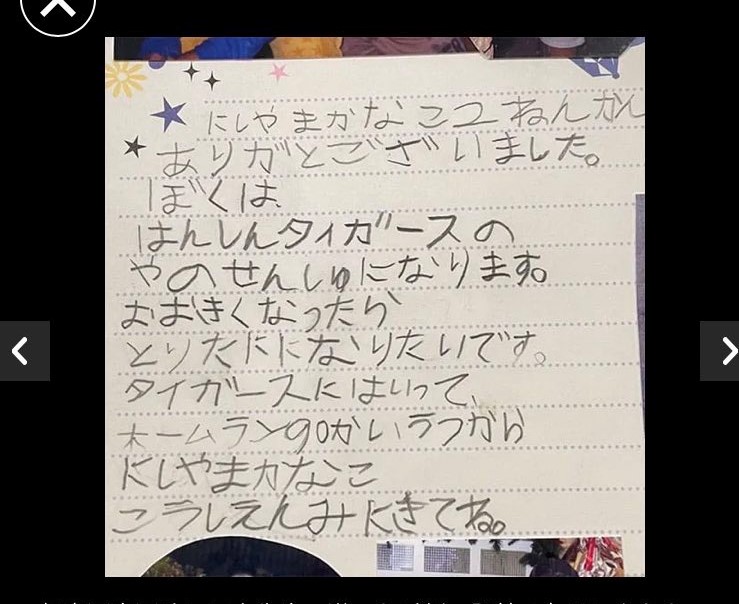 にしやまかなこ2ねんかん
ありがとございました。
ぼくは、
はんしんタイガースの
やのせんしゅになります。
おおきくなったら
とりたにになりたいです。
タイガースにはいって、
ホームラン90かいうつから
にしやまかなこ
こうしえんみにきてね。